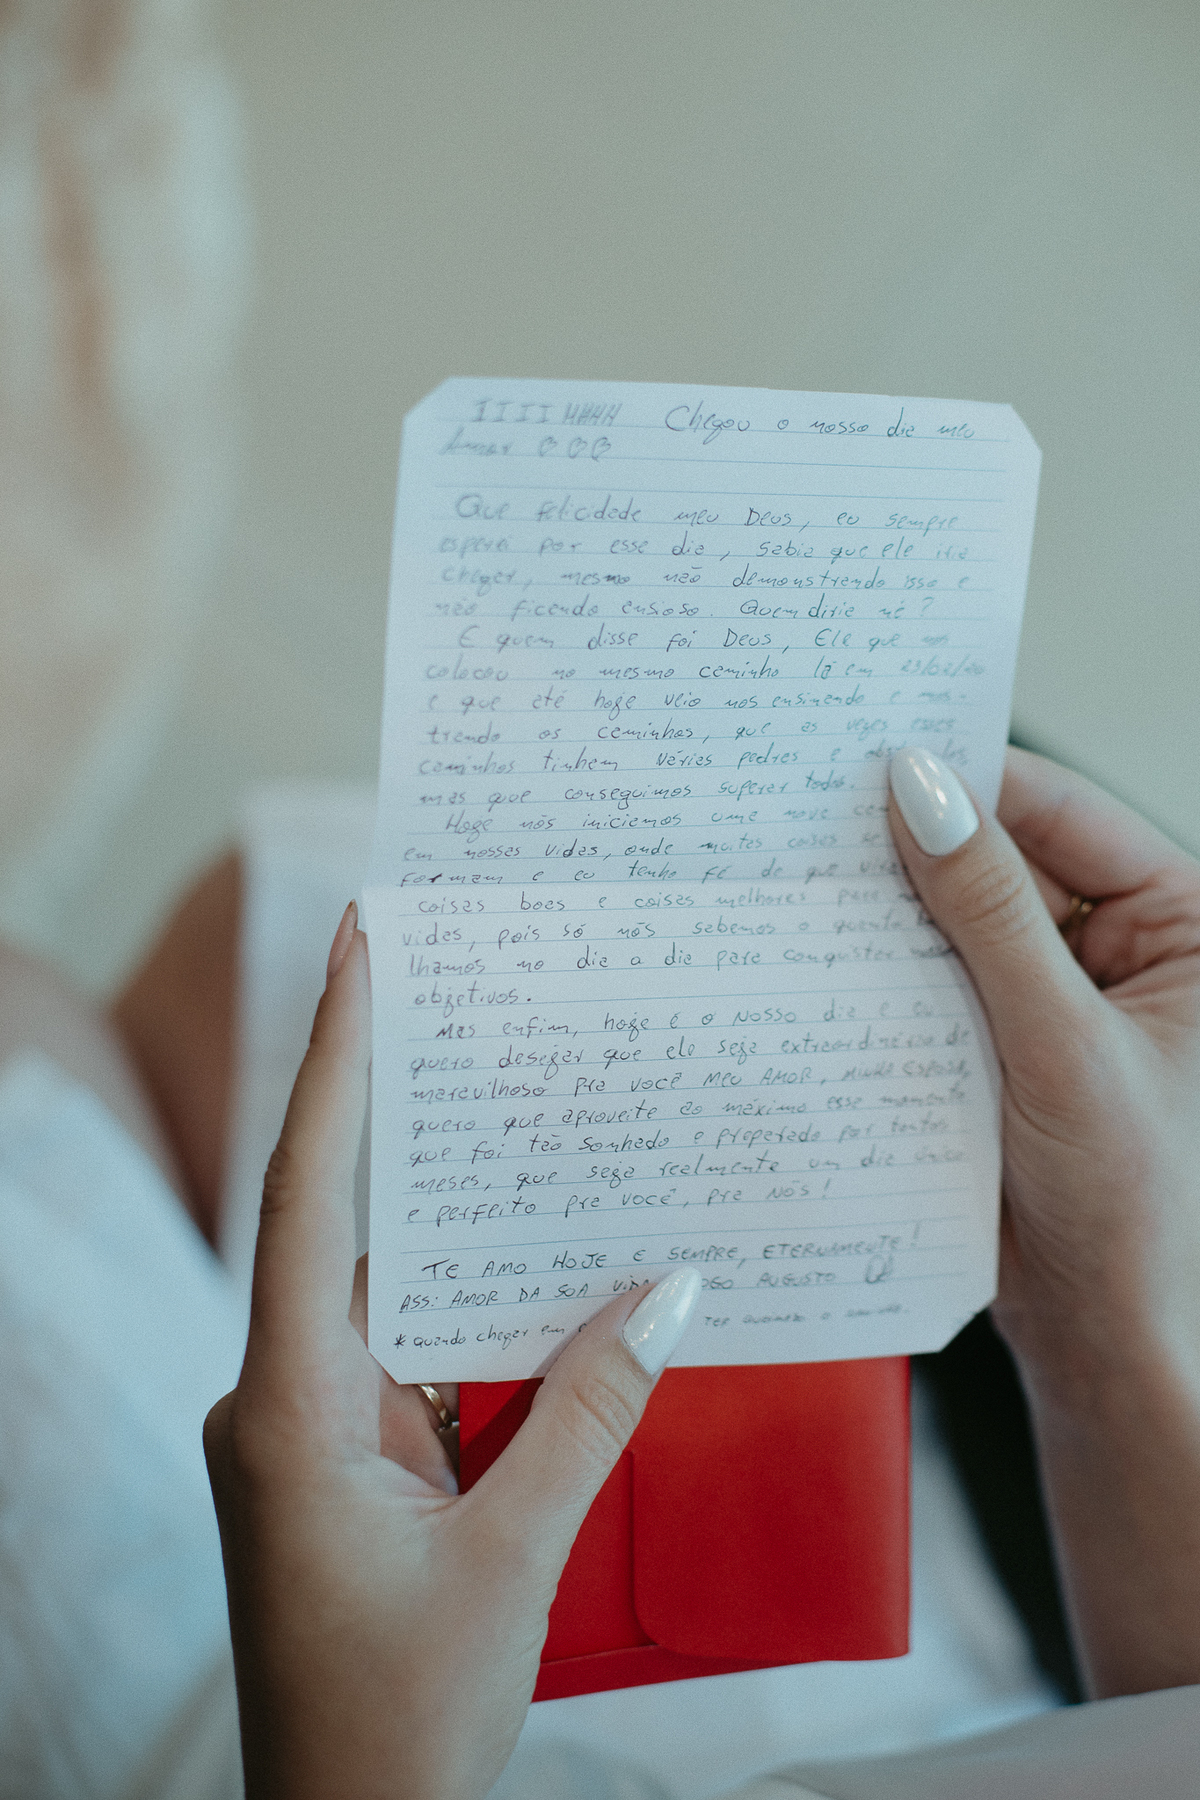 IIIIHHHH Chegou o nosso dia meu
Amor ♡♡♡
Que felicidade meu Deus, eu sempre
esperei por esse dia, sabia que ele iria
chegar, mesmo não demonstrando isso e
não ficando ansioso. Quem diria né?
E quem disse foi Deus, Ele que nos
colocou no mesmo caminho lá em
e que até hoje veio nos ensinando e mos-
trando os caminhos, que as vezes esses
caminhos tinham várias pedras e
mas que conseguimos superar todos.
Hoje nós iniciamos uma nova
em nossas vidas, onde muitas coisas se
formam e eu tenho fé de que
coisas boas e coisas melhores para
vidas, pois só nós sabemos o quanto
lhamos no dia a dia para conquistar
objetivos.
Mas enfim, hoje é o NOSSO dia e eu
quero desejar que ele seja extraordinário de
maravilhoso pra VOCÊ MEU AMOR, MINHA ESPOSA,
quero que aproveite ao máximo esse momento
que foi tão sonhado e preparado por tantos
meses, que seja realmente um dia único
e perfeito pra VOCÊ, pra NÓS!
TE AMO HOJE E SEMPRE, ETERNAMENTE!
ASS: AMOR DA SUA AUGUSTO
* Quando chegar em